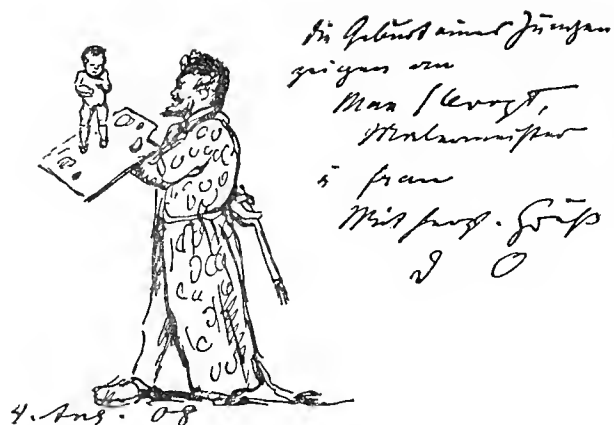 Die Geburt eines Jungen
zeigen an
Max Slevogt,
Malermeister
u Frau
Mit herzl. Gruß
D O
4. Aug. 08